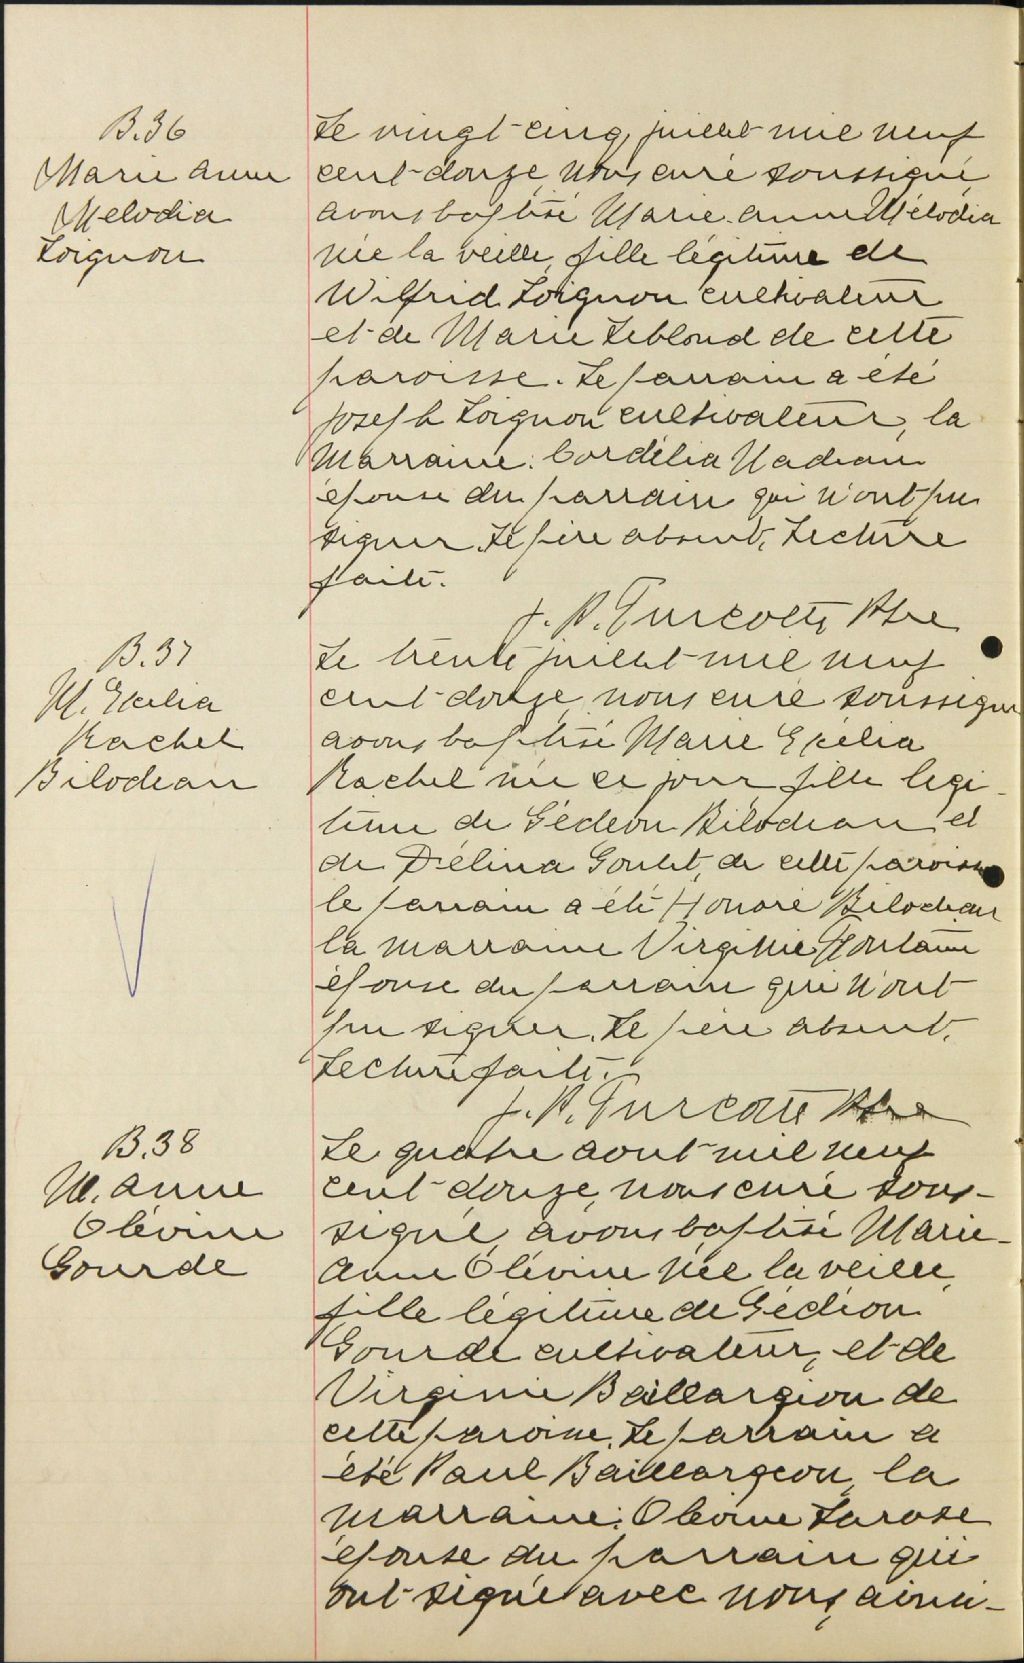 B.36
Marie Anne
Melodia
Loignon
Le vingt-cinq juillet mil neuf
cent-douze, nous curé soussigné
avons baptisé Marie-Anne Mélodia
née la veille, fille légitime de
Wilfrid Loignon cultivateur
et de Marie Leblond de cette
paroisse. Le parrain a été
Joseph Loignon cultivateur, la
marraine: Cordélia Nadeau
épouse du parrain qui n'ont pu
signer. Le père absent, Lecture
faite.
J. P. Turcotte Ptre
B.37
M. Exélia
Rachel
Bilodeau
Le trente juillet mil neuf
cent-douze, nous curé soussigné
avons baptisé Marie Exélia
Rachel née ce jour fille légi-
time de Gédeon Bilodeau et
de Délina Goulet, de cette paroisse
le parrain a été Honoré Bilodeau
la marraine Virginie Fontaine
épouse du parrain qui n'ont
pu signer. Le père absent.
Lecture faite.
J. P. Turcotte Ptre
B.38
M. Anne
Olévine
Gourde
Le quatre aout mil neuf
cent-douze, nous curé sous-
signé, avons baptisé Marie-
Anne Olévine née la veille,
fille légitime de Gédéon
Gourde cultivateur, et de
Virginie Baillargeon de
cette paroisse. Le parrain a
été Paul Baillargeon, la
marraine: Olévine Larose
épouse du parrain qui
ont signé avec nous, ainsi-